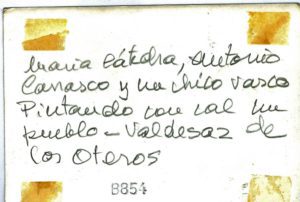 María Cátedra, Antonio
Carrasco y un chico vasco
Pintando con cal un
pueblo - Valdesaz de
los Oteros
8854